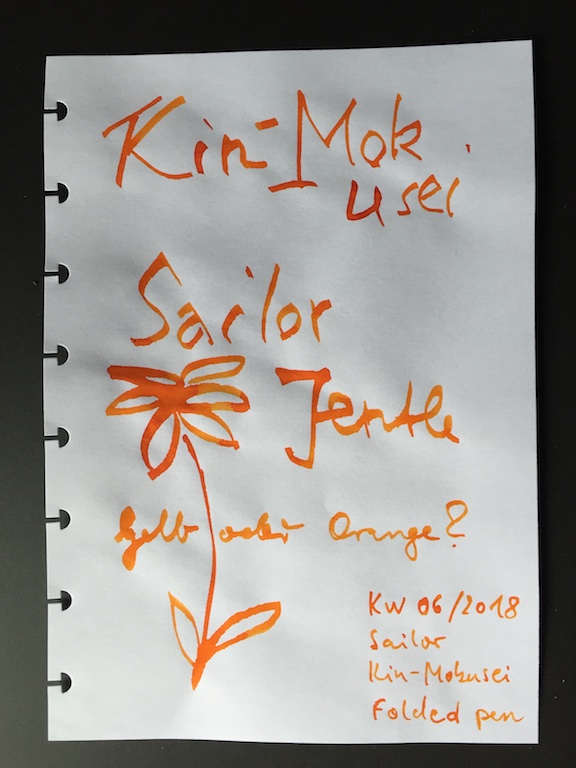 Kin-Mok
usei
Sailor
Jentle
Gelb oder Orange?
KW 06/2018
Sailor
Kin-Mokusei
Folded pen